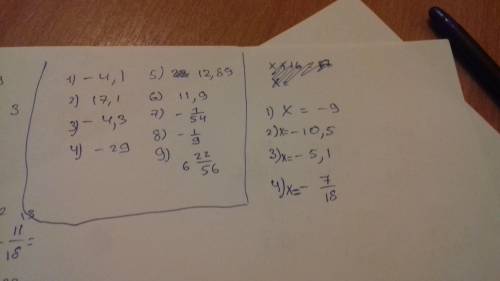 3
1) -4,1
2) 17,1
3) -4,3
4) -29
5) 12,89
6) 11,9
7) -1/54
8) -1/9
9) 6 22/56
1) x = -9
2) x=-10,5
3) x=-5,1
4) x=-7/18
11/18=